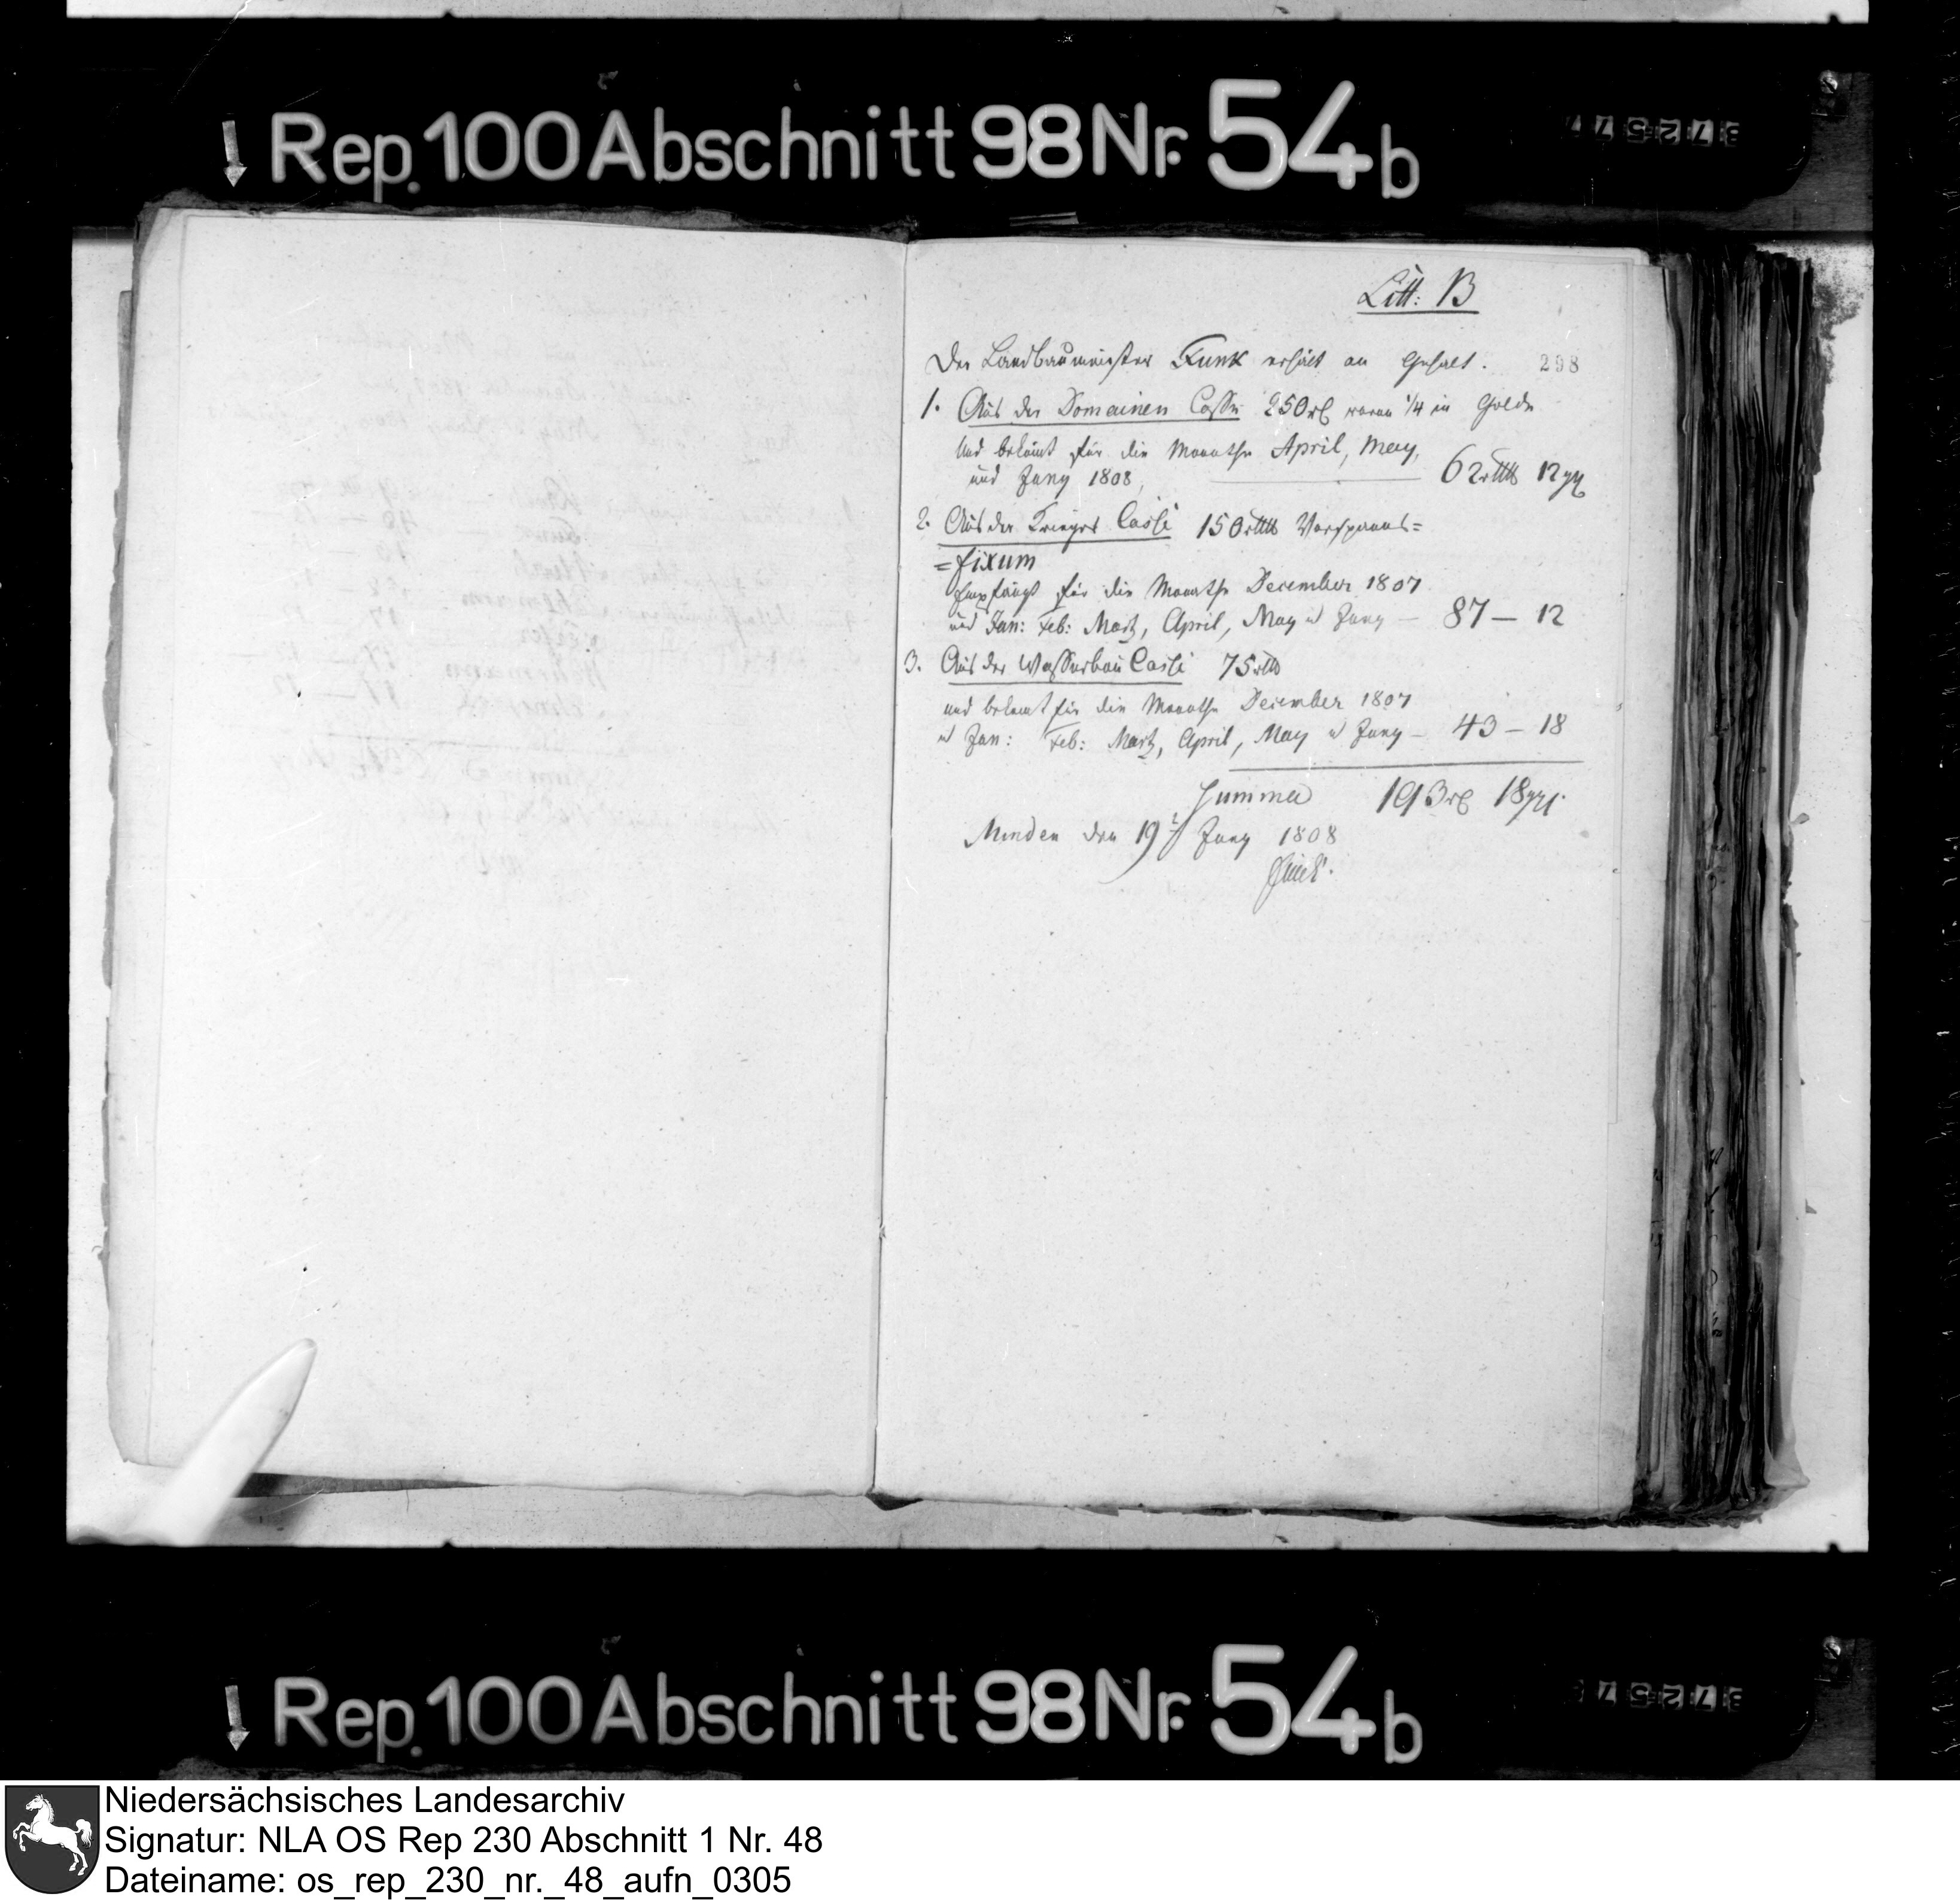 Rep. 100 Abschnitt 98 Nr. 54b
Litt: B
298
Der Landbaumeister Funk erhält an Gehalt.
1. Aus der Domainen Casse 250 rl woran 1/4 in Golde
und bekömt für die Monathe April, May,
und Juny 1808, 62 rtl 12 ggl
2. Aus der Krieges Casse 150 rtl Vorspanns=
=fixum
Empfängt für die Monathe December 1807
und Jan: Feb: Martz, April, May u Juny – 87 – 12
3. Aus der Wasserbau Casse 75 rtl
und bekomt für die Monathe December 1807
u Jan: Feb: Martz, April, May u Juny – 43 – 18
Summa 193 rl 18 ggl.
Minden den 19t Juny 1808
Funk.
Rep. 100 Abschnitt 98 Nr. 54b
Niedersächsisches Landesarchiv
Signatur: NLA OS Rep 230 Abschnitt 1 Nr. 48
Dateiname: os_rep_230_nr._48_aufn_0305